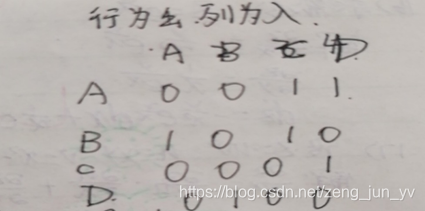 行为出.列为入.
A B C D
A 0 0 1 1
B 1 0 1 0
C 0 0 0 1
D. 0 1 0 0
https://blog.csdn.net/zeng_jun_yv